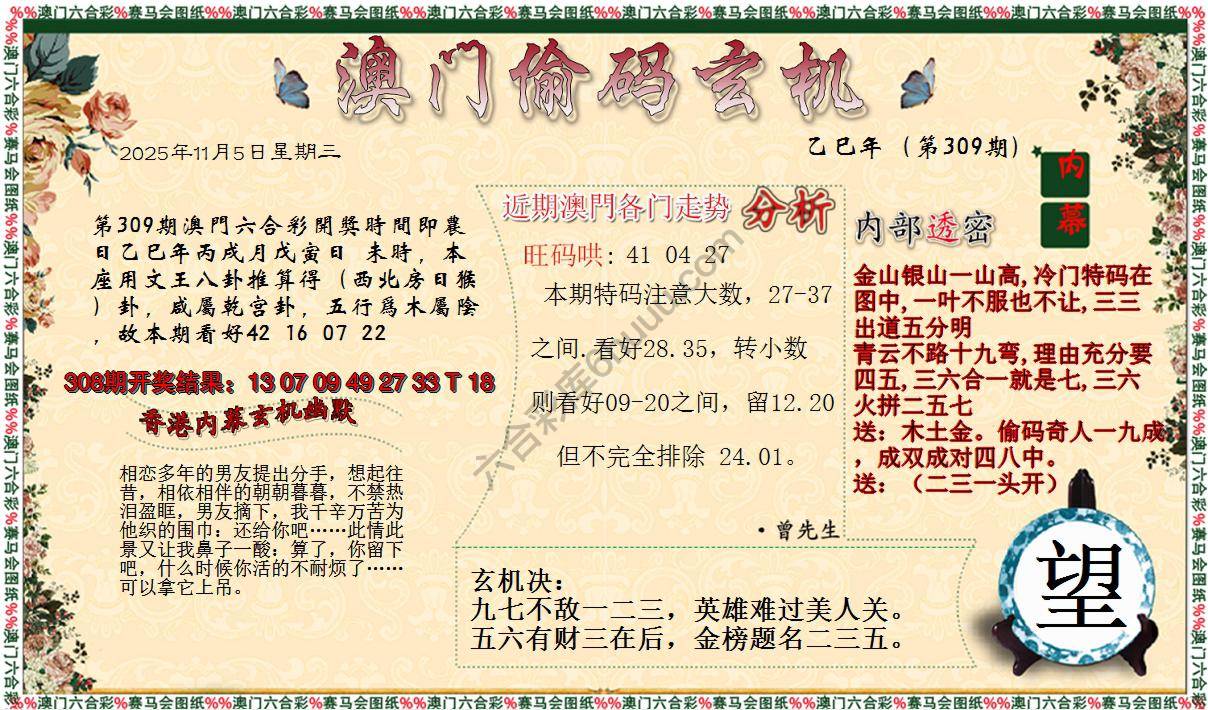 %%澳门六合彩%赛马会图纸%%澳门六合彩%赛马会图纸%%澳门六合彩%赛马会图纸%%澳门六合彩%赛马会图纸%%澳门六合彩%赛马会图纸%%澳门六合彩%赛马会图纸%%
澳门偷码玄机
2025年11月5日星期三
乙巳年（第309期）
内
幕
第309期澳門六合彩開獎時間即農
日乙巳年丙戌月戊寅日 未時，本
座用文王八卦推算得（西北房日猴
）卦，咸屬乾宫卦，五行爲木屬陰
，故本期看好42 16 07 22
308期开奖结果：13 07 09 49 27 33 T 18
香港内幕玄机幽默
相恋多年的男友提出分手，想起往
昔，相依相伴的朝朝暮暮，不禁热
泪盈眶，男友摘下，我千辛万苦为
他织的围巾：还给你吧……此情此
景又让我鼻子一酸：算了，你留下
吧，什么时候你活的不耐烦了……
可以拿它上吊。
近期澳門各门走势 分析
旺码哄：41 04 27
本期特码注意大数，27-37
之间.看好28.35，转小数
则看好09-20之间，留12.20
但不完全排除 24.01。
·曾先生
内部透密
金山银山一山高,冷门特码在
图中,一叶不服也不让,三三
出道五分明
青云不路十九弯,理由充分要
四五,三六合一就是七,三六
火拼二五七
送：木土金。偷码奇人一九成
，成双成对四八中。
送：（二三一头开）
玄机决：
九七不敌一二三，英雄难过美人关。
五六有财三在后，金榜题名二三五。
望
%%澳门六合彩%赛马会图纸%%澳门六合彩%赛马会图纸%%澳门六合彩%赛马会图纸%%澳门六合彩%赛马会图纸%%澳门六合彩%赛马会图纸%%澳门六合彩%赛马会图纸%%